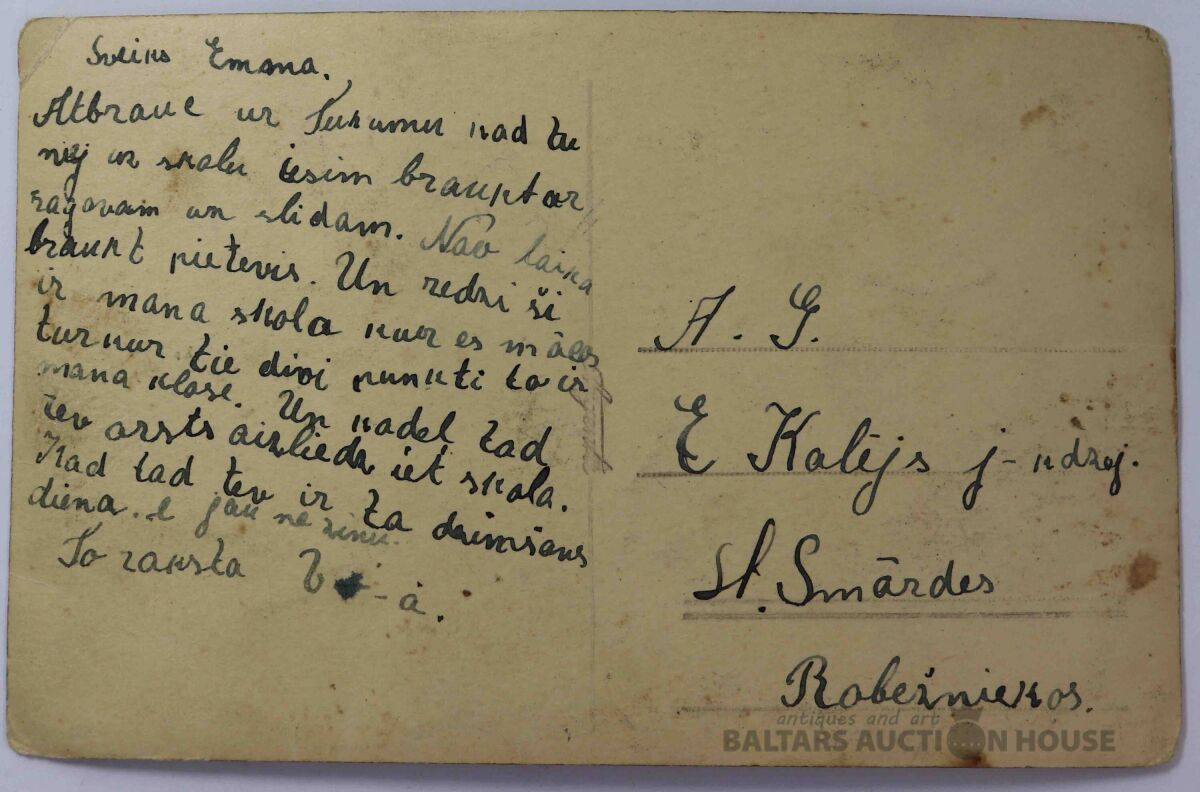 Sveiks Emma.
Atbrauc uz Tukumu kad tu
nej uz skolu iesim braukt ar
ragovam un slidam. Nav laika
braukt pietevis. Un redzi ši
ir mana skola kur es mācos
tur kur tie divi punkti ta ir
mana klase. Un kadēl tad
tev arsts aizliedz iet skola.
Kad tad tev ir ta dzimšans
diena. e jau ne zinu.
To raksta -a.
A. G.
E Kalējs j-kdzej.
St. Smārdes
Robežniekos.
antiques and art
BALTARS AUCTION HOUSE